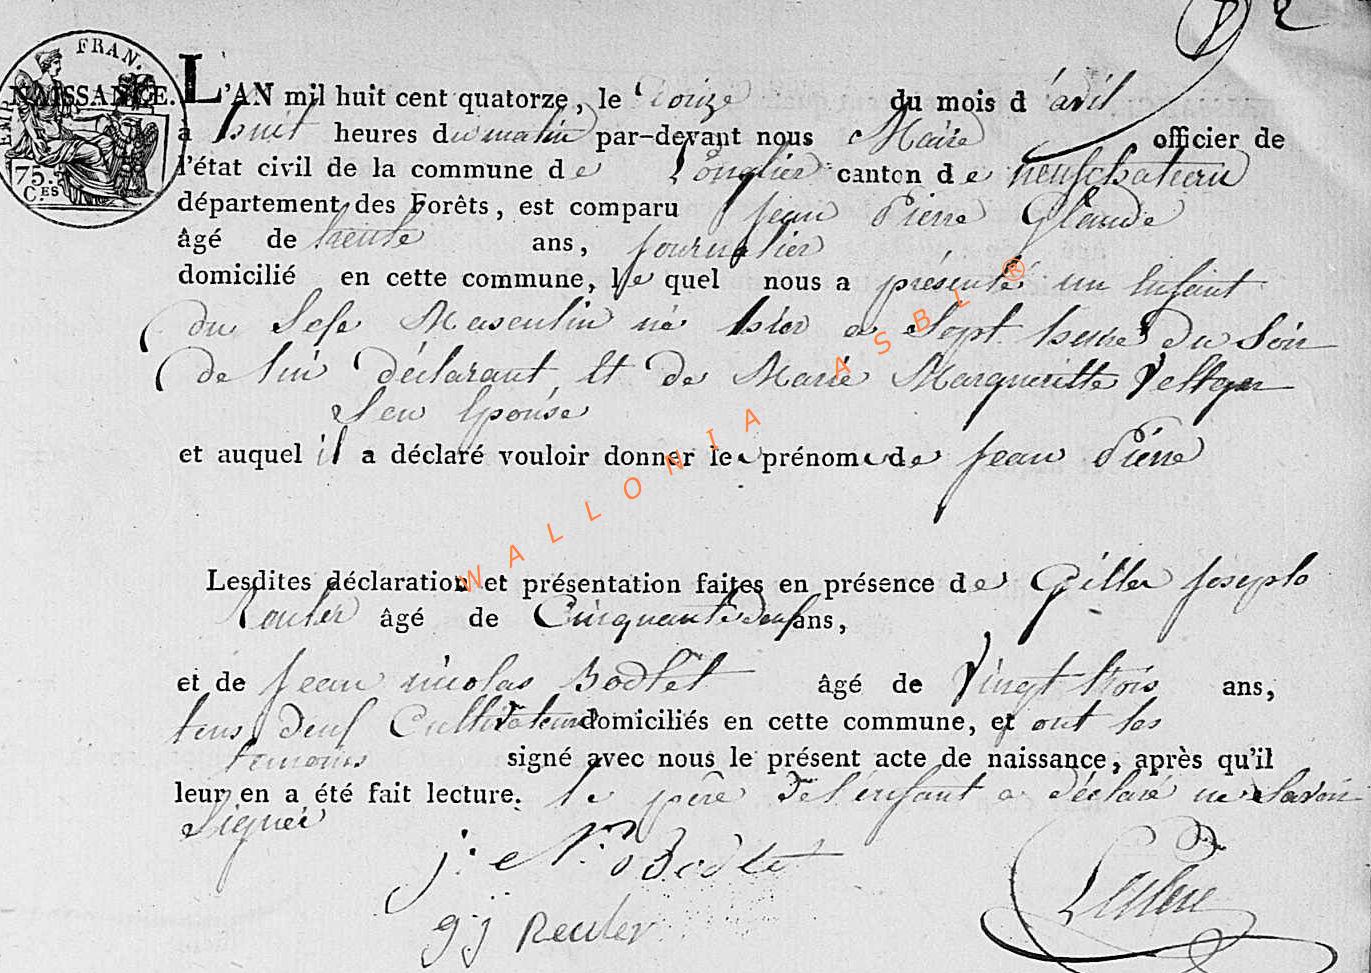 2
FRAN.
EMP.
75.
C.ES
NAISSANCE. L'AN mil huit cent quatorze, le Douze du mois d'avril
à huit heures du matin par-devant nous Maire officier de
l'état civil de la commune de Longlier canton de neufchateau
département des Forêts, est comparu Jean Pierre Glaude
âgé de trente ans, journalier
domicilié en cette commune, le quel nous a présenté un Enfant
du Sexe Masculin né hier a Sept heure du Soir
de lui déclarant, Et de Marie Margueritte
Seu Epouse
et auquel il a déclaré vouloir donner le prénom de Jean Pierre
Lesdites déclaration et présentation faites en présence de Gille Joseph
Reuler âgé de Cinquante deux ans,
et de Jean nicolas Bodlet âgé de Vingt trois ans,
tous deux Cultivateurs domiciliés en cette commune, et ont les
temoins signé avec nous le présent acte de naissance, après qu'il
leur en a été fait lecture. le père de l'enfant a déclaré ne Savoir
Signer
j. N. Bodlet
g j Reuler
WALLONIA ASBL ®